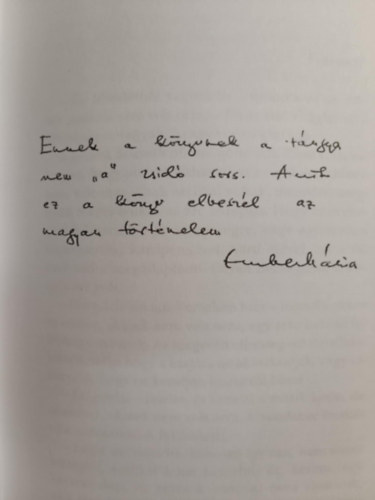 Ennek a könyvnek a tárgya
nem „a" zsidó sors. Amit
ez a könyv elbeszél az
magyar történelem
Ember Mária